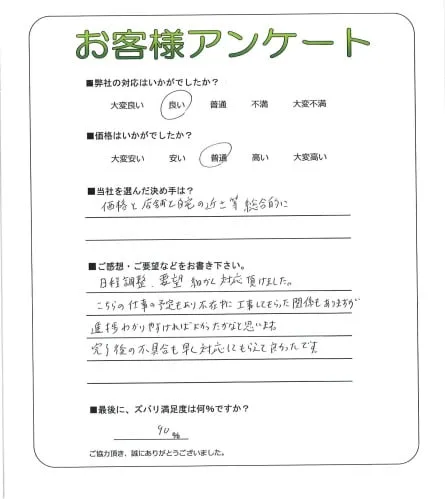 お客様アンケート
■弊社の対応はいかがでしたか?
大変良い 良い 普通 不満 大変不満
■価格はいかがでしたか?
大変安い 安い 普通 高い 大変高い
■当社を選んだ決め手は?
価格と店舗と自宅の近さ等 総合的に
■ご感想・ご要望などをお書き下さい。
日程調整、要望 細かく対応頂けました。
こちらの仕事の予定もあり不在中に工事してもらった関係もありますが
進捗わかりやすければよかったかなと思います。
完了後の不具合も早く対応してもらえて良かったです
■最後に、ズバリ満足度は何%ですか?
90 %
ご協力頂き、誠にありがとうございました。